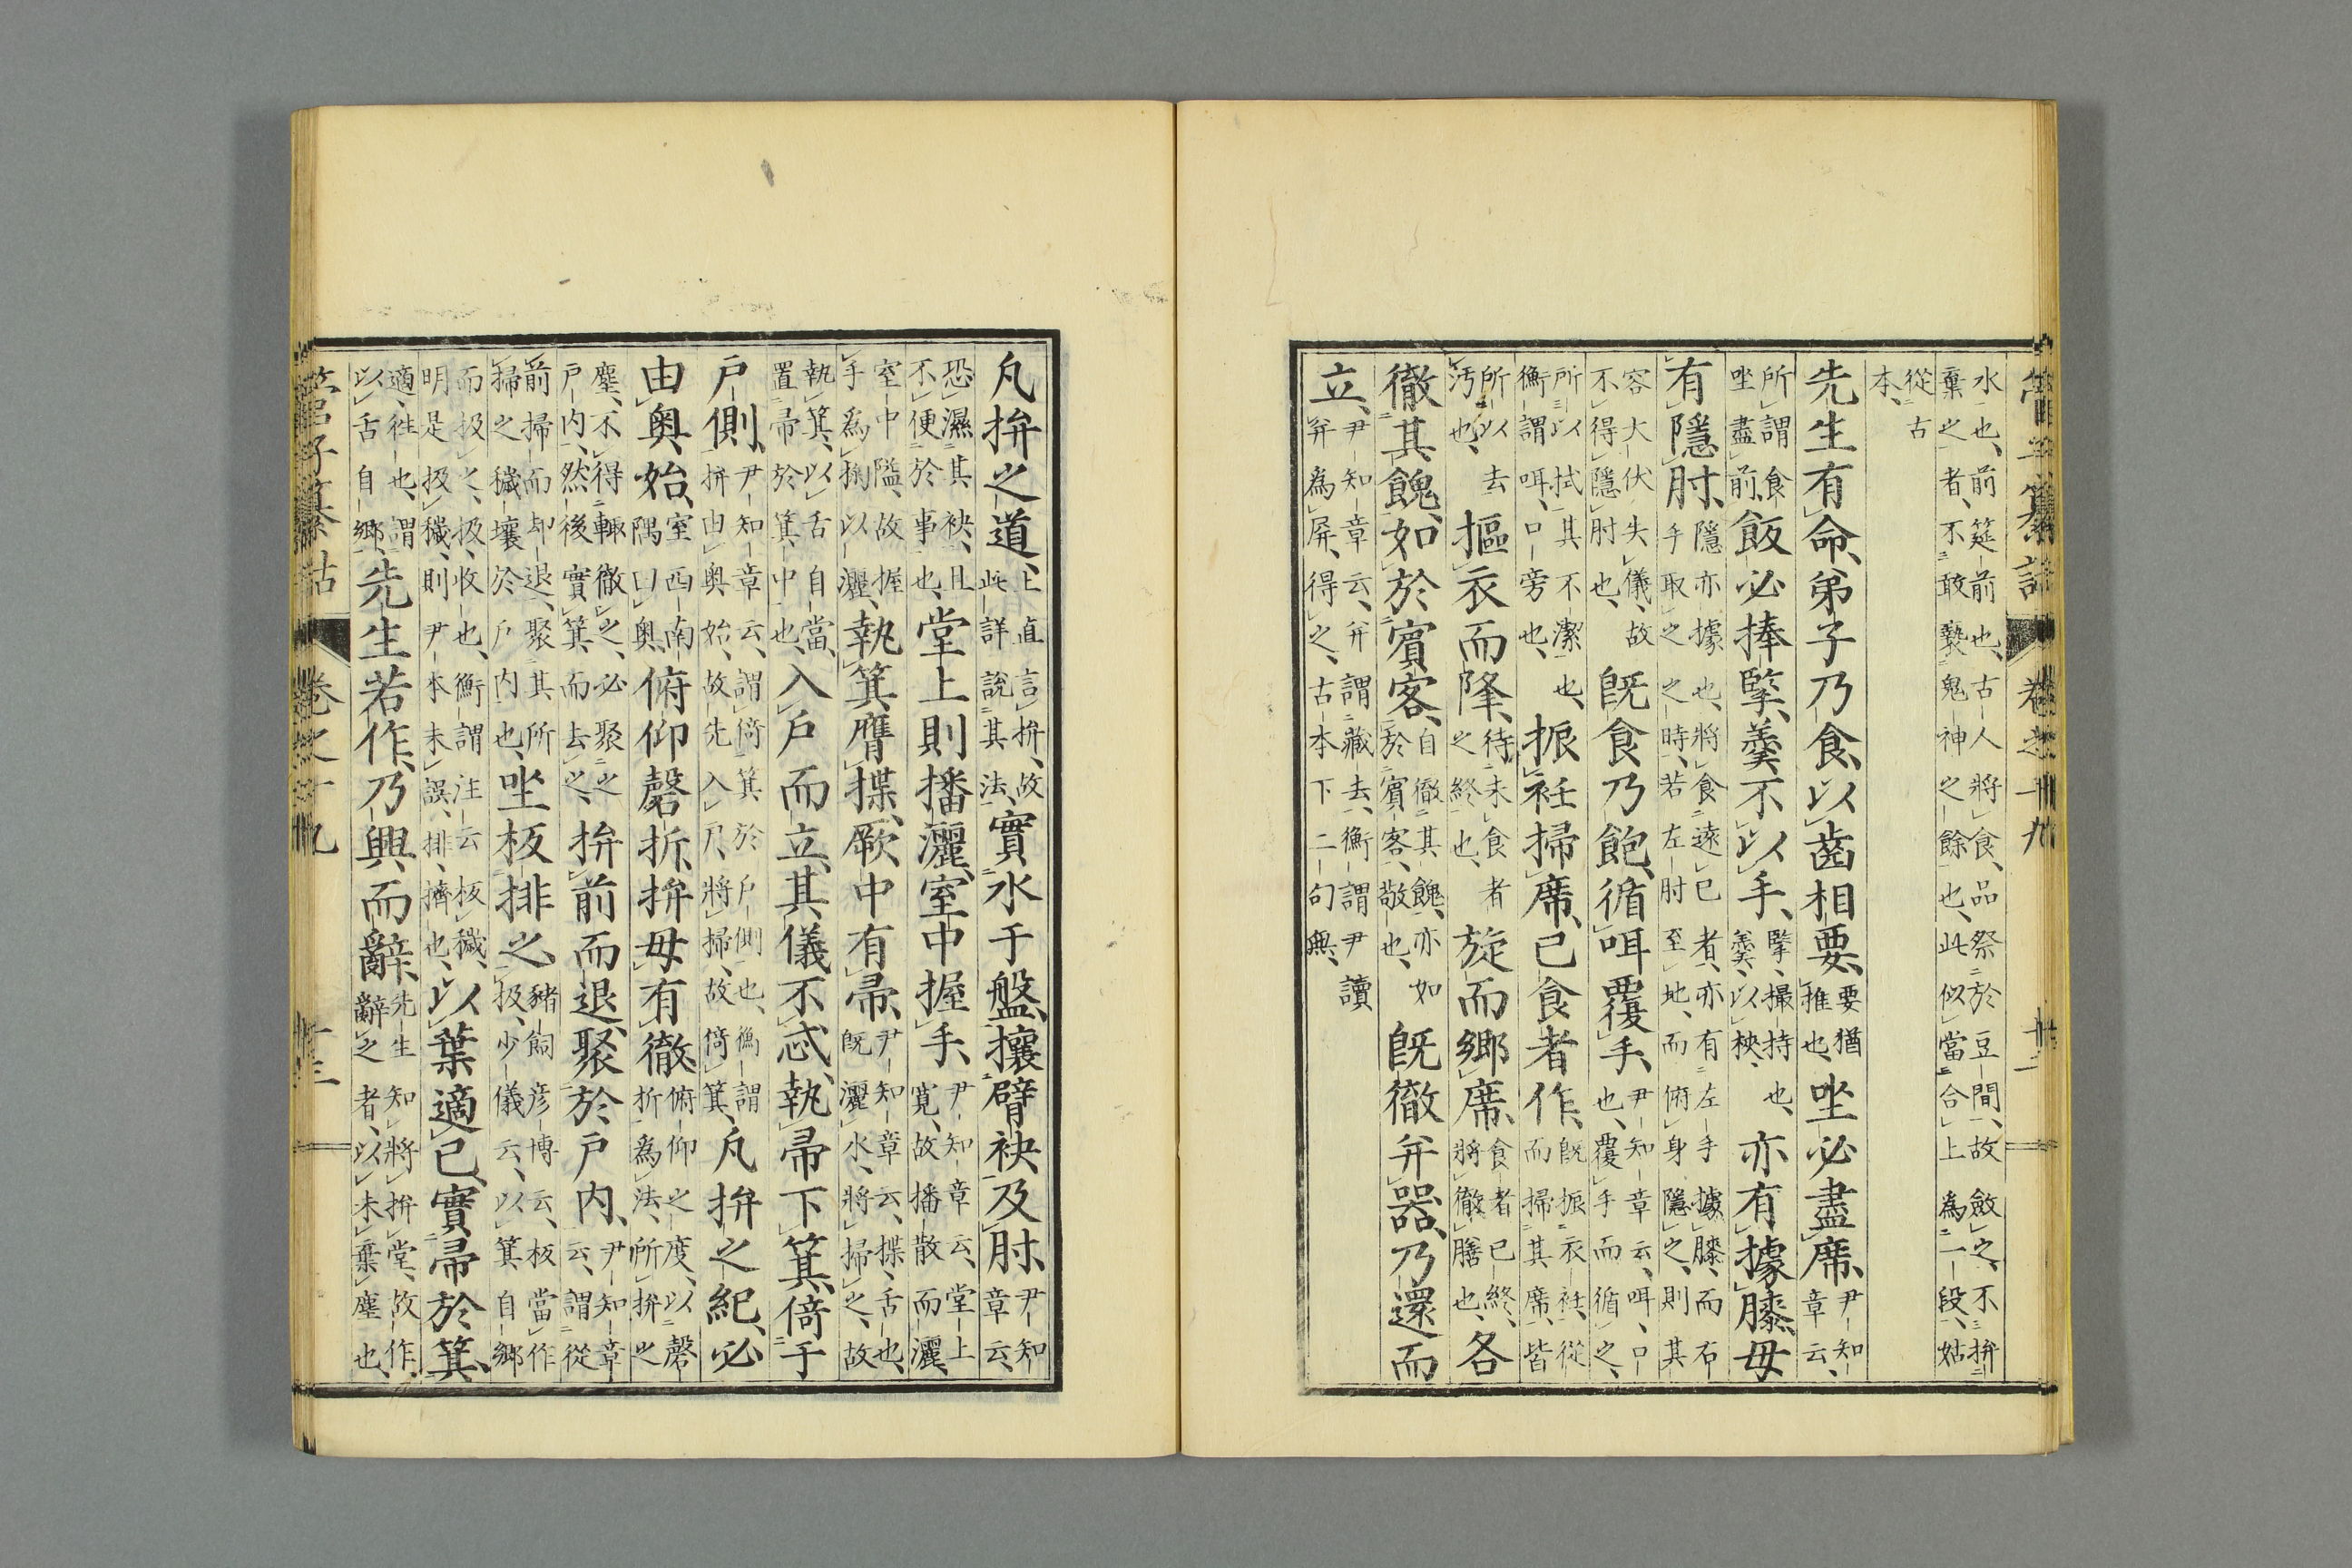 水也、前筵前也、古人將食、品祭於豆間、故斂之、不拚
棄之者、不敢褻鬼神之餘也、此似當合上為一段、姑
從古
本、
先生有命、弟子乃食、以齒相要、要猶推也、坐必盡席、尹知章云、
所謂食坐盡前、飯必捧擥、羹不以手、擥、撮持也、羹、以梜、亦有據膝、毋
有隱肘、隱亦據也、將食遠已者、亦有左手據膝、而右手取之之時、若左肘至地、而俯身隱之、則其
容大伏失儀、故不得隱肘也、既食乃飽、循咡覆手、尹知章云、咡、口也、覆手而循之、
所以拭其不潔也、衡謂咡、口旁也、振衽掃席、已食者作、既振衣衽、從而掃其席、皆
所以去汚也、摳衣而降、待未食者之終也、旋而鄉席、食者已終、將徹膳也、各
徹其餽、如於賓客、自徹其餽、亦如於賓客、敬也、既徹并器、乃還而
立、尹知章云、并謂藏去、衡謂尹讀并為屏、得之、古本下二句無、
凡拚之道、上直言拚、故此詳說其法、實水于盤、攘臂袂及肘、尹知章云、
恐濕其袂、且不便於事也、堂上則播灑、室中握手、尹知章云、堂上寛、故播散而灑、
室中隘、故握手為掬以灑、執箕膺揲、厥中有帚、尹知章云、揲、舌也、既灑水、將掃之、故
執箕、以舌自當、置帚於箕中也、入戶而立、其儀不忒、執帚下箕、倚于
戶側、尹知章云、謂倚箕於戶側也、衡謂拚由奧始、故先入戶、將掃、故倚箕、凡拚之紀、必
由奧始、室西南隅曰奧、俯仰磬折、拚毋有徹、俯仰之度、以磬折為法、所拚之
塵、不得輒徹之、必聚之戶內、然後實箕而去之、拚前而退、聚於戶內、尹知章云、謂從
前掃而却退、聚其所掃之穢壤於戶內也、坐板排之、豬飼彦博云、板當作扱、少儀云、以箕自鄉
而扱之、扱、收也、衡謂注云板穢、明是扱穢、則尹本未誤、排、擠也、以葉適已、實帚於箕、
適、往也、謂以舌自鄉、先生若作、乃興而辭、先生知將拚堂、故作、辭之者、以未棄塵也、
管子纂詁 卷之十九